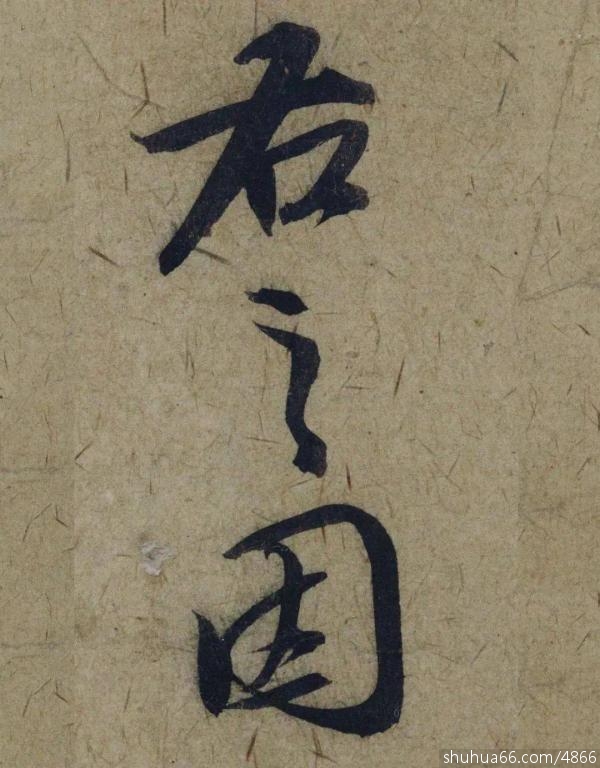 右之因
shuhua66.com/4866